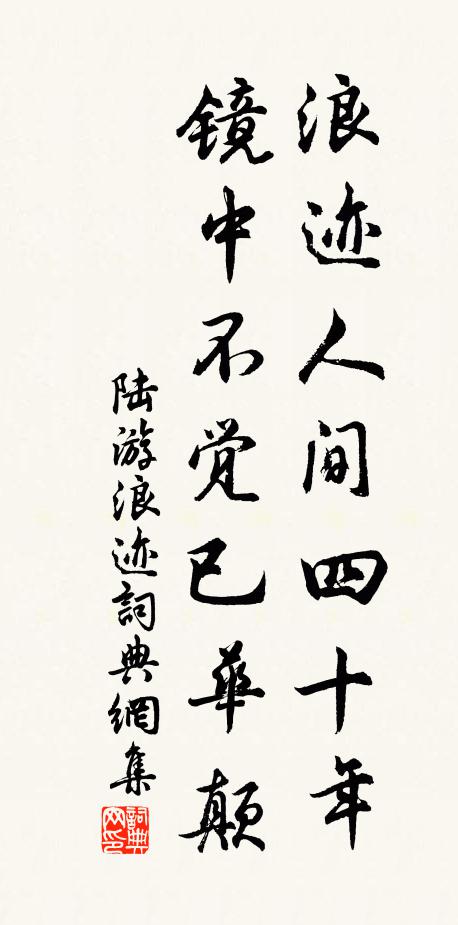 浪迹人间四十年
镜中不觉已华颠
陆游浪迹詞典網集
詞典网印